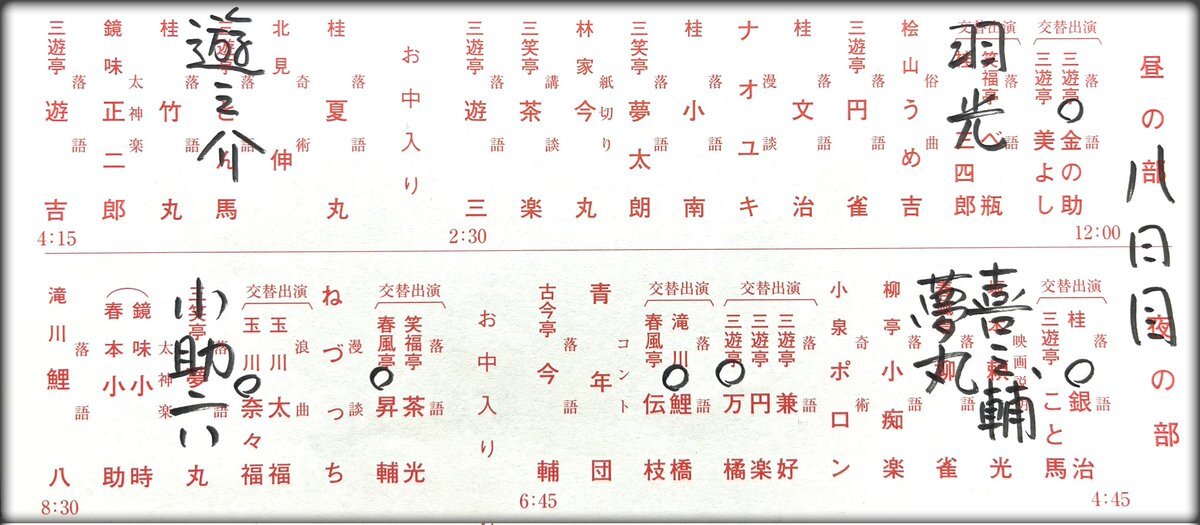 昼の部
八日目
交替出演
落語
三遊亭 金の助
三遊亭 美よし
12:00
交替出演
落語
笑福亭 べ瓶
三四郎
羽光
俗曲
桧山うめ吉
落語
三遊亭 円雀
落語
桂文治
漫談
ナオユキ
落語
桂小南
落語
夢太朗
紙切り
林家今丸
三笑亭 茶楽
落語
三遊亭 遊三
2:30
お中入り
落語
桂夏丸
奇術
北見伸
落語
三遊亭 とん馬
遊之介
落語
桂竹丸
太神楽
鏡味正二郎
落語
三遊亭 遊吉
4:15
夜の部
交替出演
落語
桂銀治
三遊亭 こと馬
4:45
映画説明
頼光
喜之輔、
落語
柳雀
夢丸
落語
柳亭小痴楽
奇術
小泉ポロン
交替出演
落語
三遊亭 兼好
三遊亭 円楽
三遊亭 万橘
交替出演
落語
滝川鯉橋
春風亭 伝枝
コント
青年団
落語
古今亭 今輔
6:45
お中入り
交替出演
落語
笑福亭 茶光
春風亭 昇輔
漫談
ねづっち
交替出演
浪曲
玉川太福
玉川奈々福
落語
三笑亭 夢丸
小助六
太神楽
鏡味小時
春本小助
落語
滝川鯉八
8:30